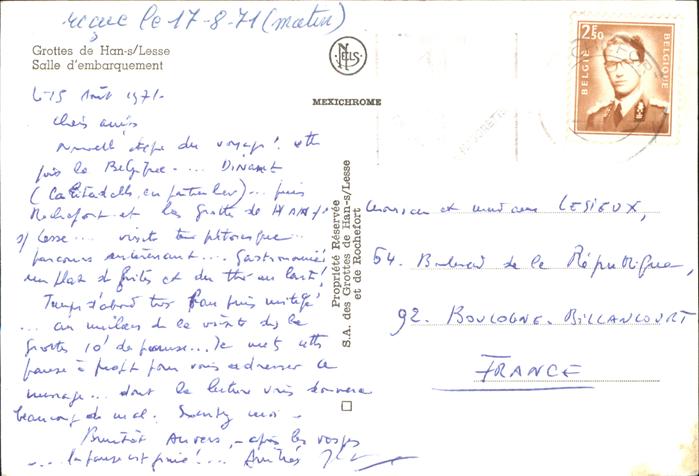 reçue le 17-8-71 (matin)
Grottes de Han-s/Lesse
Salle d'embarquement
NELS
MEXICHROME
BELGIE 2F50 BELGIQUE
Le 15 Août 1971.
Chers amis
Nouvelle étape du voyage! cette
fois la Belgique.... DINANT
(La Citadelle, en particulier)... puis
Rochefort et la Grotte de HAN
s/ Lesse... visite très pittoresque...
parcours intéressant.... Gastronomie!
un plat de frites et du thé au lait!
Temps d'abord très beau puis mitigé
... au milieu de la visite de la
grotte 10' de pause... Je mets cette
pause à profit pour vous adresser ce
message... dont la lecture vous donnera
beaucoup de mal. Excusez moi -
Bientôt Anvers, - après les
... la pause est finie!... Amitiés
Propriété Réservée
S.A. des Grottes de Han-s/Lesse
et de Rochefort
Monsieur et madame LESIEUX,
54. Boulevard de la République,
92. BOULOGNE-BILLANCOURT
FRANCE